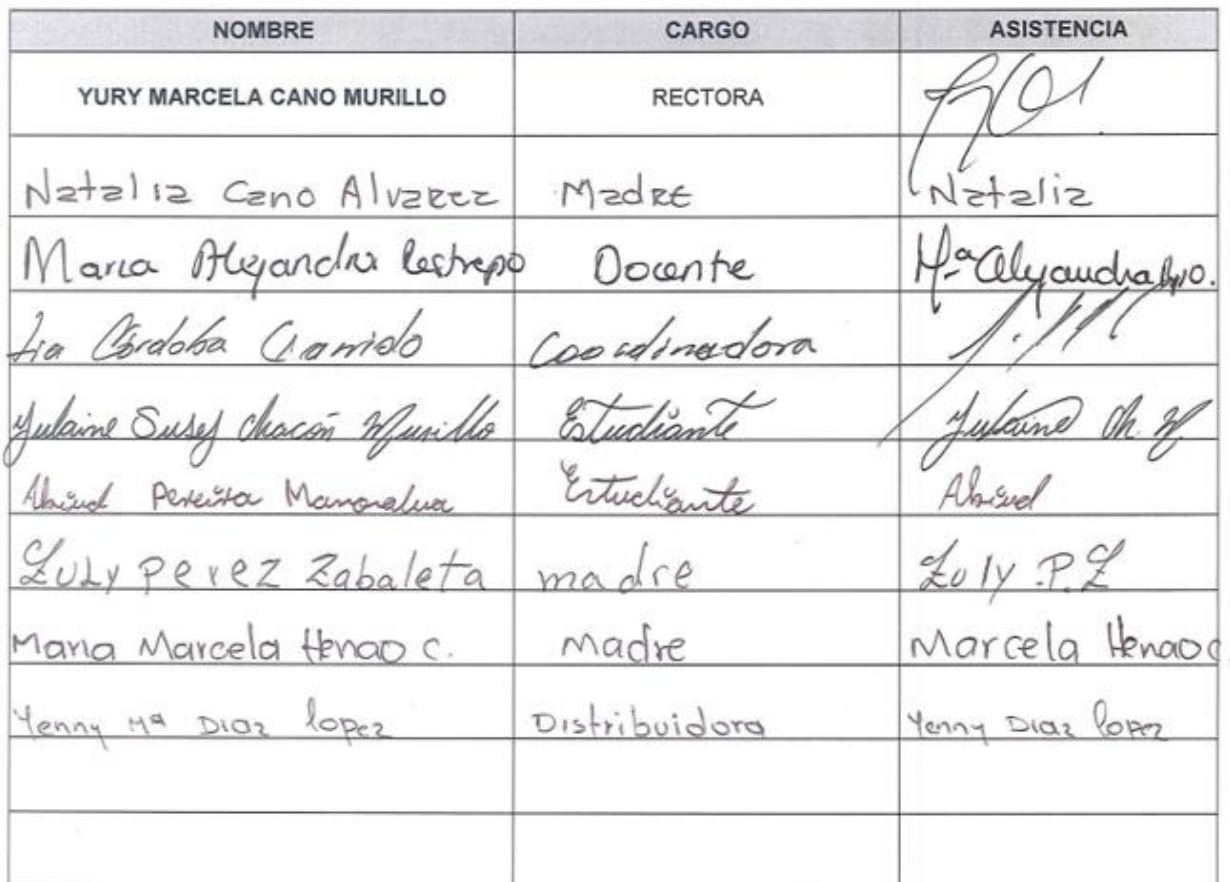 NOMBRE CARGO ASISTENCIA
YURY MARCELA CANO MURILLO RECTORA
Natalia Cano Alvarez Madre Natalia
Maria Alejandra Restrepo Docente Mª Alejandra
Lia Córdoba Coordinadora
Yulaine Susej Chacón Murillo Estudiante Yulaine Ch. M
Abiud Pereira Estudiante Abiud
Zuly Perez Zabaleta madre Zuly .P.Z
Maria Marcela Henao C. Madre Marcela Henao C
Yenny Mª Diaz lopez Distribuidora Yenny Diaz lopez